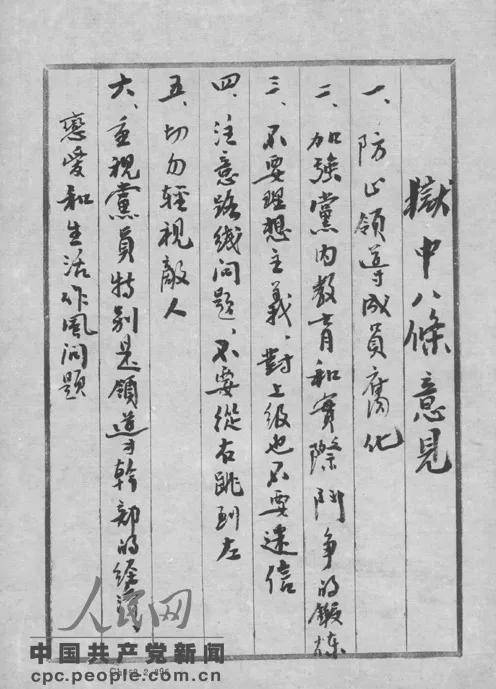 獄中八條意見
一、防止領導成員腐化
二、加強黨內教育和實際鬥争的鍛炼
三、不要理想主義，對上級也不要迷信
四、注意路线问題，不要從右跳到左
五、切勿輕視敵人
六、重視黨員特别是領導幹部的经濟、
戀愛和生活作風问題
人民网
中国共产党新闻
cpc.people.com.cn